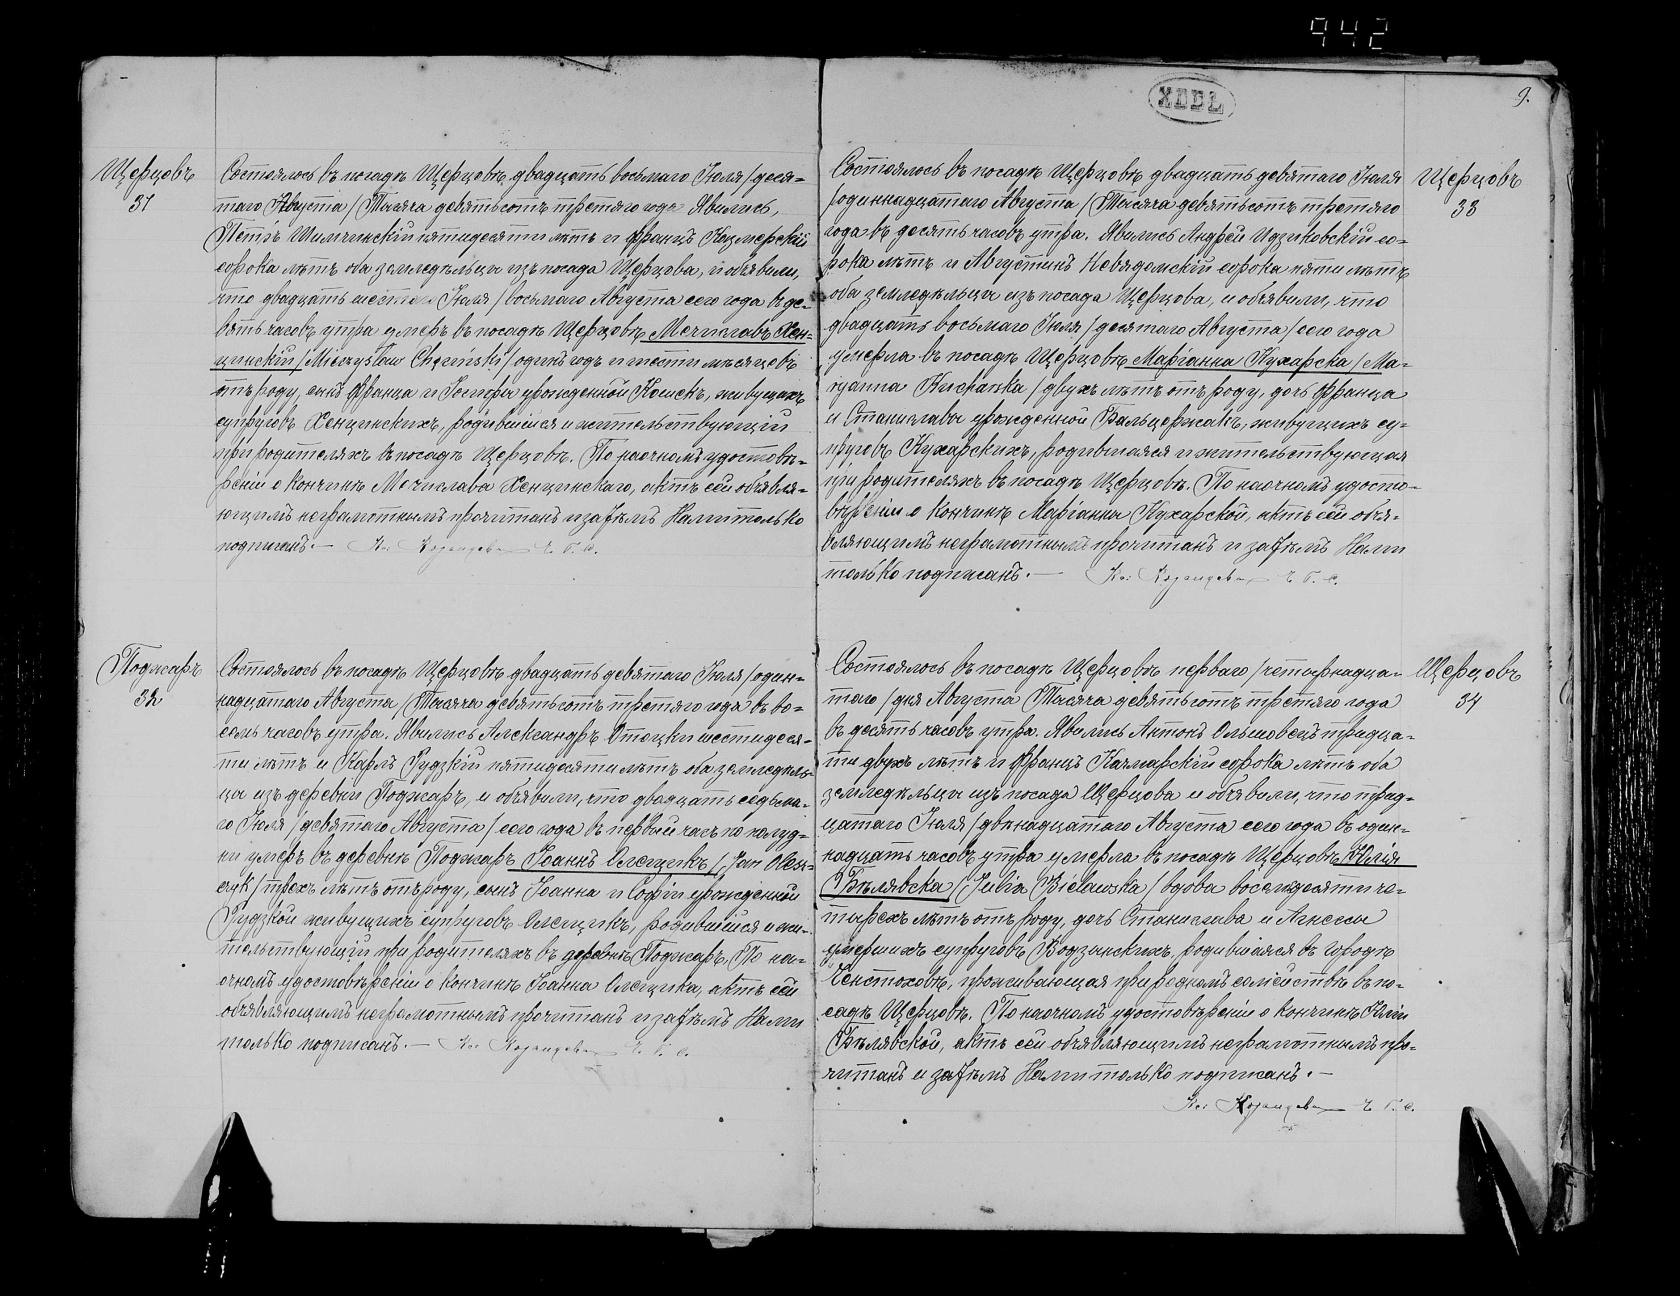 942
XDDL
9.
Щерцовъ
31
Состоялось въ посадѣ Щерцовѣ двадцать восьмаго Іюля /деся-
таго Августа/ Тысяча девятьсотъ третяго года Явились,
Петръ Шимчинскій пятидесяти лѣтъ и Францъ Казмерскій
сорока лѣтъ оба земледѣльцы изъ посада Щерцова, и объявили,
что двадцать шестаго Іюля /восьмаго Августа сего года въ де-
вять часовъ утра умеръ въ посадѣ Щерцовѣ Мечиславъ Хен-
цинскій /Mieczysław Chęciński/ одинъ годъ и шесть мѣсяцовъ
отъ роду, сынъ Франца и Іозефы урожденной Конекъ, живущихъ
супруговъ Хенцинскихъ, родившійся и жительствующій
при родителяхъ въ посадѣ Щерцовѣ. По наочномъ удостовѣ-
реніи о кончинѣ Мечислава Хенцинскаго, актъ сей объявля-
ющимъ неграмотнымъ прочитанъ и затѣмъ Нами только
подписанъ.—
Поджаръ
32
Состоялось въ посадѣ Щерцовѣ двадцать девятаго Іюля /один-
надцатаго Августа/ Тысяча девятьсотъ третяго года въ во-
семь часовъ утра. Явились Александръ Отоцки шестидеся-
ти лѣтъ и Карлъ Рудзкій пятидесяти лѣтъ оба земледѣль-
цы изъ деревни Поджаръ, и объявили, что двадцать седьма-
го Іюля /девятаго Августа/ сего года въ первый часъ по полуд-
ни умеръ въ деревнѣ Поджаръ Іоаннъ Олещикъ /Jan Olesz-
czyk/ трехъ лѣтъ отъ роду, сынъ Іоанна и Софіи урожденной
Рудзкой живущихъ супруговъ Олещикъ, родившійся и жи-
тельствующій при родителяхъ въ деревнѣ Поджаръ. По на-
очномъ удостовѣреніи о кончинѣ Іоанна Олещика, актъ сей
объявляющимъ неграмотнымъ прочитанъ и затѣмъ Нами
только подписанъ.—
Щерцовъ
33
Состоялось въ посадѣ Щерцовѣ двадцать девятаго Іюля
/одиннадцатаго Августа/ Тысяча девятьсотъ третяго
года въ десять часовъ утра. Явились Андрей Идзиковскій со-
рока лѣтъ и Августинъ Невядомскій сорока пяти лѣтъ
оба земледѣльцы изъ посада Щерцова, и объявили, что
двадцать восьмаго Іюля /десятаго Августа/ сего года
умерла въ посадѣ Щерцовѣ Маріанна Кухарска /Ma-
ryanna Kucharska/ двухъ лѣтъ отъ роду, дочь Франца
и Станиславы урожденной Бальцержакъ, живущихъ су-
пруговъ Кухарскихъ, родившаяся и жительствующая
при родителяхъ въ посадѣ Щерцовѣ. По наочномъ удосто-
вѣреніи о кончинѣ Маріанны Кухарской, актъ сей объя-
вляющимъ неграмотнымъ прочитанъ и затѣмъ Нами
только подписанъ.—
Щерцовъ
34
Состоялось въ посадѣ Щерцовѣ перваго /четырнадца-
таго/ дня Августа Тысяча девятьсотъ третяго года
въ десять часовъ утра. Явились Антонъ Ольшовецъ тридца-
ти двухъ лѣтъ и Францъ Качмарскій сорока лѣтъ оба
земледѣльцы изъ посада Щерцова и объявили, что трид-
цатаго Іюля /двѣнадцатаго Августа сего года въ один-
надцать часовъ утра умерла въ посадѣ Щерцовѣ Юлія
Бѣлявска /Julia Bielawska/ вдова восемдесяти че-
тырехъ лѣтъ отъ роду, дочь Станислава и Агнесы
умершихъ супруговъ Водзинскихъ, родившаяся въ городѣ
Ченстоховѣ, проживающая при родномъ семействѣ въ по-
садѣ Щерцовѣ. По наочномъ удостовѣреніи о кончинѣ Юліи
Бѣлявской, актъ сей объявляющимъ неграмотнымъ про-
читанъ и затѣмъ Нами только подписанъ.—